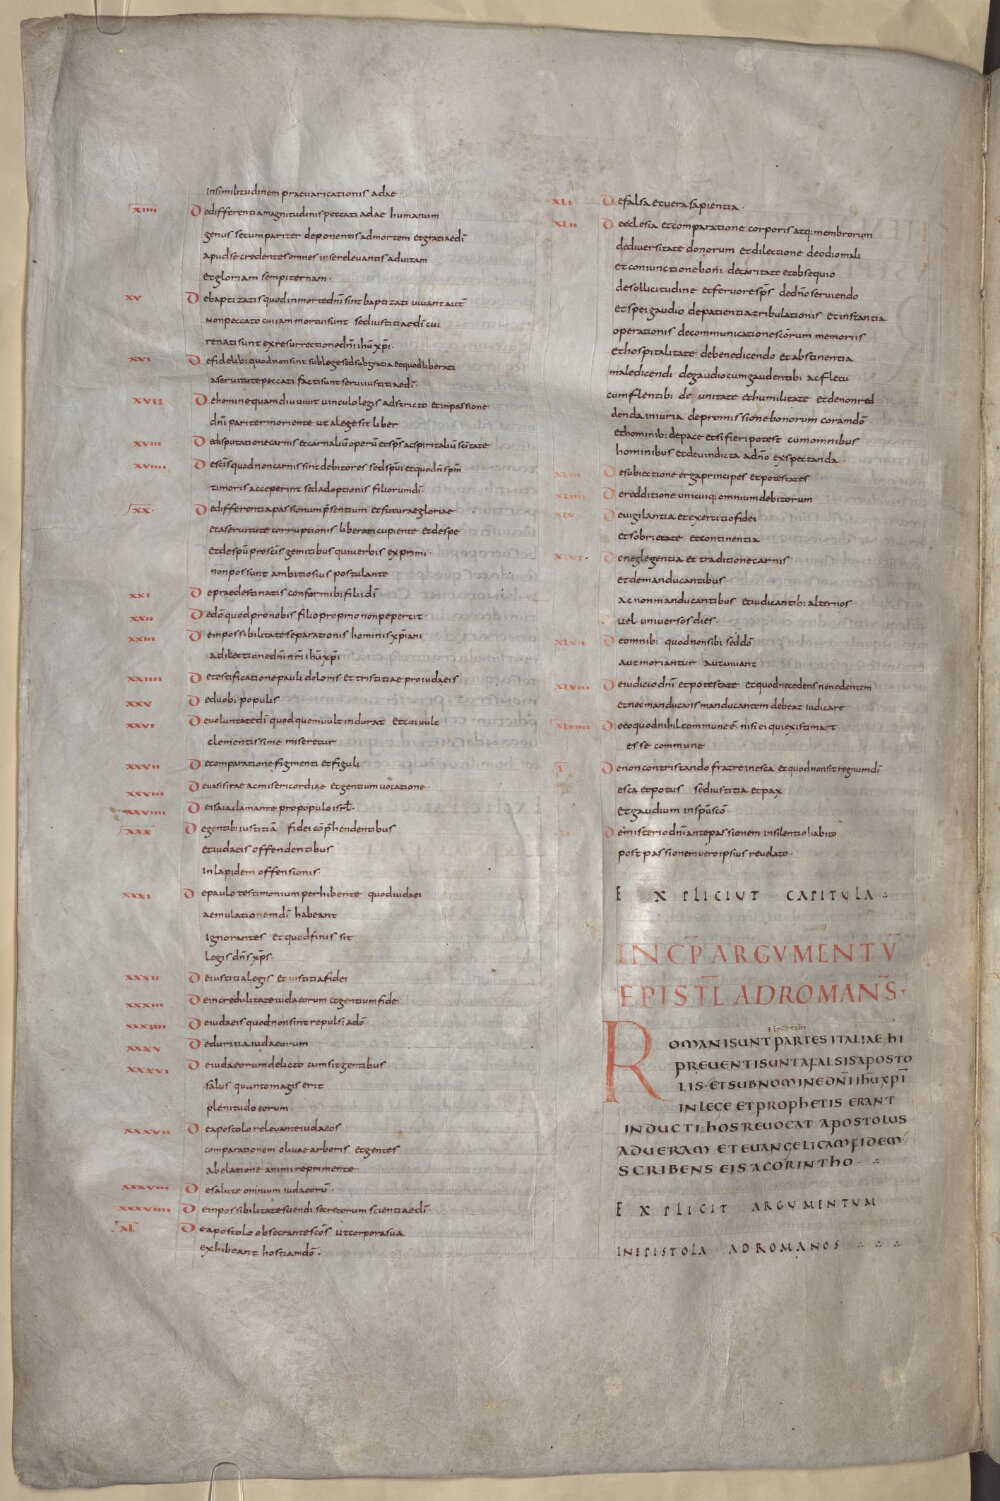 insimilitudinem praevaricationis adae ·
XIIII De differentia magnitudinis peccati adae humanum
genus secum pariter deponentis ad mortem et gratia edi
apud se credentes omnes in se relevantis ad vitam
et gloriam sempiternam ·
XV De baptizatis quod in morte dn̄i sint baptizati vivant autē
non peccato cui iam mortui sunt sed iustitiae dī cui
renati sunt ex resurrectione dn̄i ihū xpī ·
XVI De fidelib; quod non sint sub lege sed sub gratia et quod liberati
a servitute peccati facti sunt servi iustitiae dī ·
XVII De homine quamdiu vivit vinculo legis adstricto et in passione
dn̄i pariter moriente ut a lege sit liber
XVIII De disputatione carnis et carnaliū operū et sp̄s ac spiritaliū
XVIIII De eis quod non carnis sint debitores sed sp̄ui et quod n̄ sp̄m
timoris acceperint sed adoptionis filiorum dī ·
XX De differentia passionum p̄sentium et futurae gloriae
et a servitute corruptionis liberari cupiente et de spe
et de sp̄u pro sc̄is gemitibus qui verbis exprimi ·
non possunt ambitiosius postulante
XXI De praedestinatis conformib; filii dī
XXII De dō quod pro nobis filio proprio non pepercit
XXIII De inpossibilitate separationis hominis xp̄iani
a dilectione dn̄i n̄ri ihū xpī
XXIIII De testificatione pauli doloris et tristitiae pro iudaeis
XXV De duob; populis
XXVI De voluntate dī quod quem vult indurat et cui vult
clementissime miseretur
XXVII De comparatione figmenti et figuli
XXVIII De vasis irae ac misericordiae et gentium vocatione ·
XXVIIII De isaia clamante pro populo isrl̄ ·
XXX De gentib; iustitiā fidei cōp̄hendentibus
et iudaeis offendentibus
in lapidem offensionis
XXXI De paulo testimonium perhibente quod iudaei
aemulationem dī habeant
ignorantes et quod finis sit
legis dn̄s xp̄s ·
XXXII De iustitia legis et iustitia fidei
XXXIII De incredulitate iudaeorum et gentium fide ·
XXXIIII De iudaeis quod non sint repulsi a dō
XXXV De duritia iudaeorum
XXXVI De iudaeorum delicto cum sit gentibus
salus quanto magis erit
plenitudo eorum ·
XXXVII De apostolo relevante iudaeos
comparationem olivae arboris et gentes
ab elatione animi reprimente
XXXVIII De salute omnium iudaeorū ·
XXXVIIII De inpossibilitate sciendi secretorum scientiae dī
XL De apostolo obsecrante sc̄os ut corpora sua
exhibeant hostiam dō ·
XLI De falsa et vera sapientia ·
XLII De ecclesia et comparatione corporis atq; membrorum
de diversitate donorum et dilectione de odio mali
et coniunctione boni de caritate et obsequio
de sollicitudine et fervore sp̄s de dn̄o serviendo
et spei gaudio de patientia tribulationis et instantia
operationis de communicatione sc̄orum memoriis
et hospitalitate de benedicendo et abstinentia
maledicendi de gaudio cum gaudentib; ac fletu
cum flentibi de unitate et humilitate et de non red
denda iniuria de promissione bonorum coram dō
et hominib; de pace et si fieri potest cum omnibus
hominibus et de vindicta a dn̄o exspectanda ·
XLIII De subiectione erga principes et potestates
XLIIII De redditione unicuiq; omnium debitorum
XLV De vigilantia et exercitio fidei
et sobrietate et continentia
XLVI · De neglegentia et traditione carnis
et de manducantibus
ac non manducantibus et iudicantib; alternos
vel universos dies ·
XLVII De omnib; quod non sibi sed dō
aut moriantur aut vivant
XLVIII De iudicio dn̄i et potestate et quod nec edens non edentem
et nec manducans manducantem debeat iudicare
XLVIIII De eo quod nihil commune ē nisi ei qui existimat
esse commune
L De non contristando fratre in esca et quod non sit regnum dī
esca et potus sed iustitia et pax
et gaudium in sp̄u sc̄o ·
LI De misterio dn̄i ante passionem in silentio habito
post passionem vero ipsius revelato ·
EXPLICIUT CAPITULA ∴
INCP̄ ARGVMENTV̄
EPISTL̄ AD ROMANS̄ ·
ROMANI SUNT PARTES ITALIAE, HI
PREVENTI SUNT A FALSIS APOSTO
LIS · ET SUB NOMINE DN̄I IHŪ XPĪ
IN LEGE ET PROPHETIS ERANT
INDUCTI; HOS REVOCAT APOSTOLUS
AD VERAM ET EVANGELICAM FIDEM
SCRIBENS EIS A CORINTHO · ∴
EXPLICIT ARGVMENTVM
IN EPISTOLA AD ROMANOS ∴ ∴ ∴